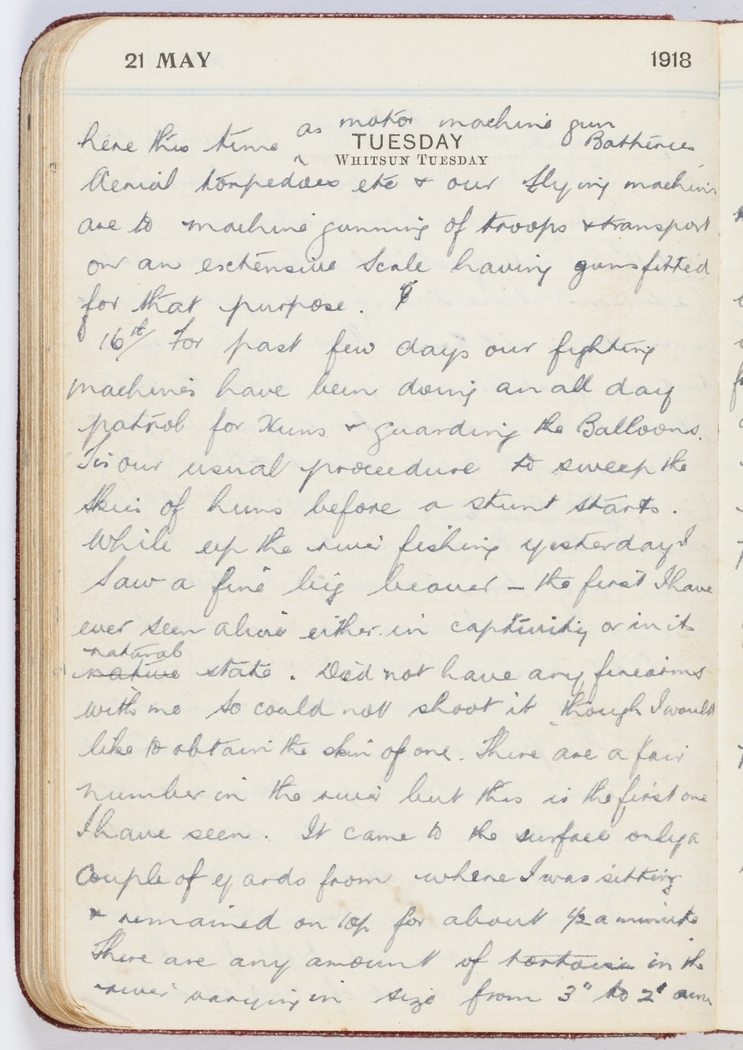 21 MAY 1918
TUESDAY
WHITSUN TUESDAY
here this time as motor machine gun Batteries
Aerial torpedoes etc & our flying machines
are to machine gunning of troops & transport
on an exctensive scale having guns fitted
for that purpose.
16th/ For past few days our fighting
machines have been doing an all day
patrol for Huns & guarding the Balloons.
Tis our usual proceedure to sweep the
skies of huns before a stunt starts.
While up the river fishing yesterday I
saw a fine big beaver – the first I have
ever seen alive either in captivity or in its
natural
native state. Did not have any firearms
with me so could not shoot it though I would
like to obtain the skin of one. There are a fair
number in the river but this is the first one
I have seen. It came to the surface only a
couple of yards from where I was sitting
& remained on top for about 1/2 a minute
There are any amount of tortoise in the
river varying in size from 3" to 2'